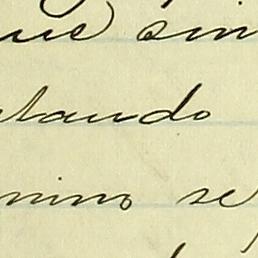 ue sin
tando
nino se